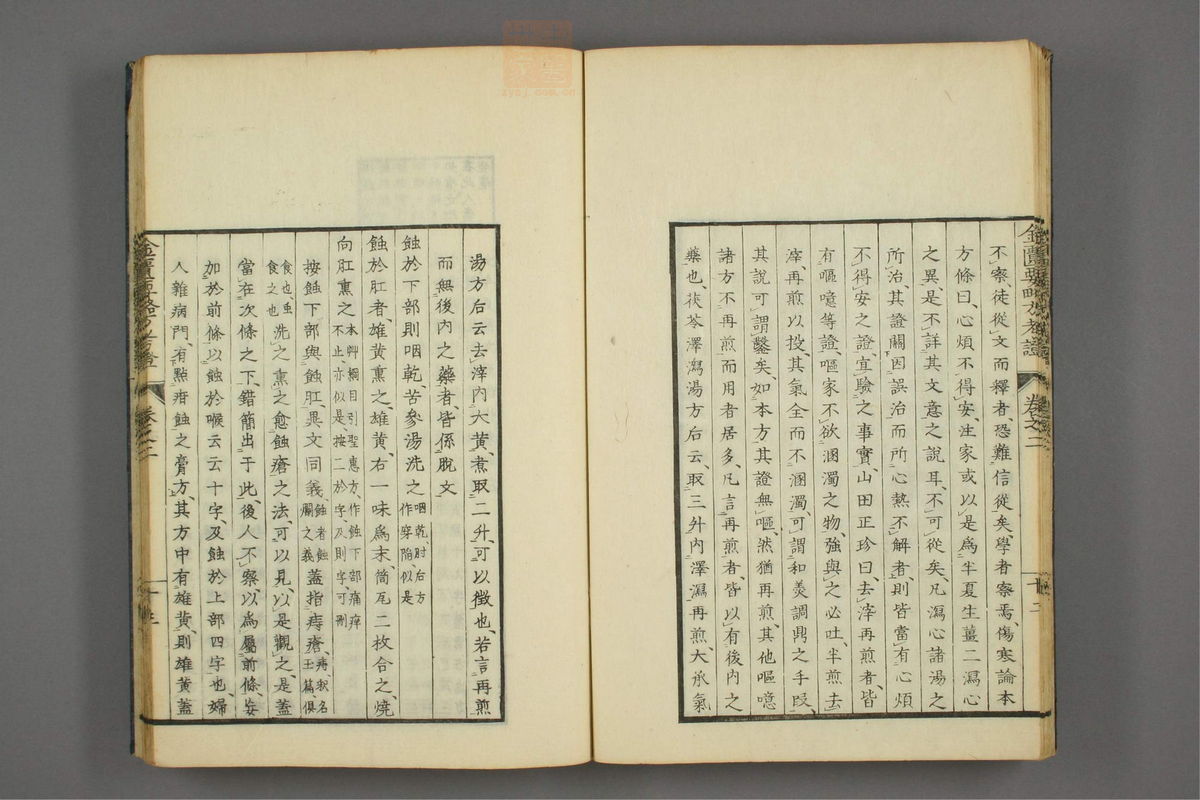 不察、徒從文而釋者、恐難信從矣、學者察焉、傷寒論本
方條曰、心煩不得安、注家或以是爲半夏生薑二瀉心
之異、是不詳其文意之說耳、不可從矣、凡瀉心諸湯之
所治、其證關因誤治而所心熱不解者、則皆當有心煩
不得安之證、宜驗之事實、山田正珍曰、去滓再煎者、皆
有嘔噫等證、嘔家不欲溷濁之物、強與之必吐、半煎去
滓、再煎以投、其氣全而不溷濁、可謂和羹調鼎之手段、
其說可謂鑿矣、如本方其證無嘔、然猶再煎、其他嘔噫
諸方不再煎而用者居多、凡言再煎者、皆以有後內之
藥也、茯苓澤瀉湯方后云、取三升內澤瀉再煎、大承氣
金匱要略方考證
卷之二
十二
湯方后云去滓內大黃、煮取二升、可以徵也、若言再煎
而無後內之藥者、皆係脫文
蝕於下部則咽乾、苦參湯洗之咽乾、肘后方
作穿陷似是
蝕於肛者、雄黃熏之、雄黃、右一味爲末、筒瓦二枚合之、燒
向肛熏之本艸綱目引聖惠方、作蝕下部痛痒
不止、亦似是、按二於字、及則字可刪
按蝕下部與蝕肛、異文同義、蝕者蝕
爛之義蓋指痔瘡、痔、玉篇、俱
食也、䖝
食之也洗之熏之愈蝕瘡之法、可以見、以是觀之、是蓋
當在次條之下、錯簡出于此、後人不察、以爲屬前條、妄
加於前條以蝕於喉云云十字、及蝕於上部四字也、婦
人雜病門、有點疳蝕之膏方、其方中有雄黃、則雄黃蓋
卷之二
十三